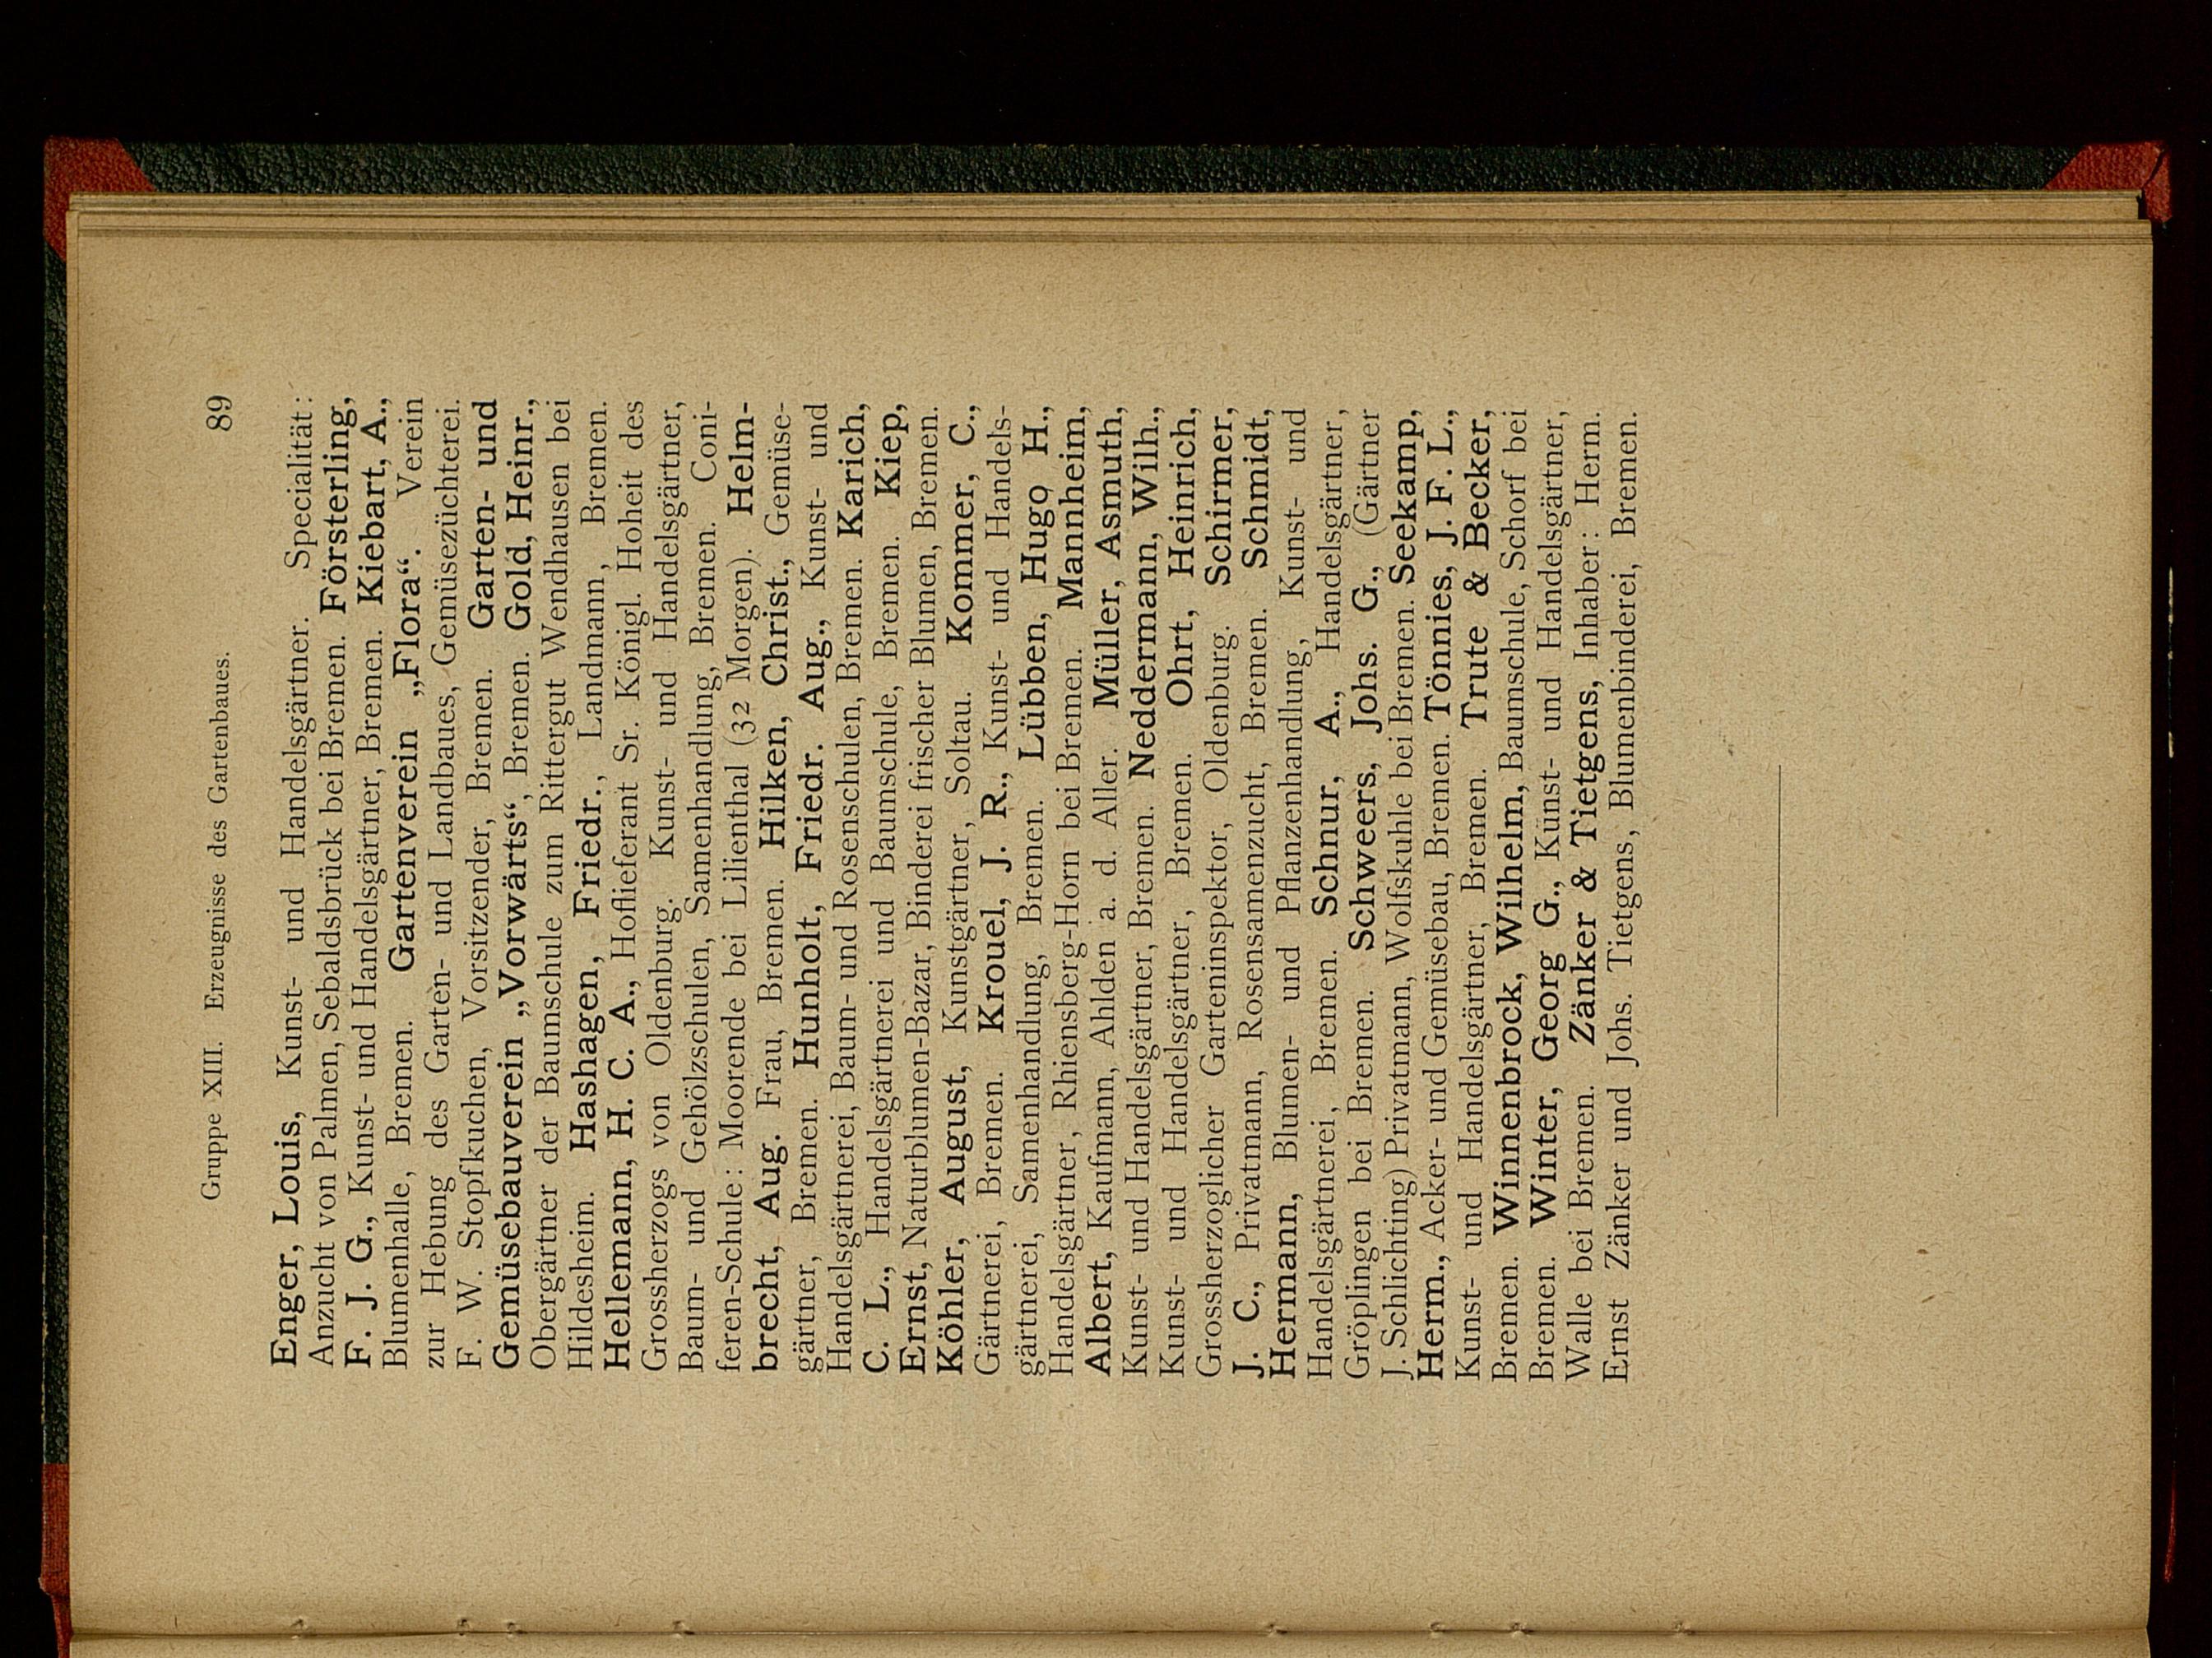 Gruppe XIII. Erzeugnisse des Gartenbaues. 89
Enger, Louis, Kunst- und Handelsgärtner. Specialität:
Anzucht von Palmen, Sebaldsbrück bei Bremen. Försterling,
F. J. G., Kunst- und Handelsgärtner, Bremen. Kiebart, A.,
Blumenhalle, Bremen. Gartenverein „Flora“. Verein
zur Hebung des Garten- und Landbaues, Gemüsezüchterei.
F. W. Stopfkuchen, Vorsitzender, Bremen. Garten- und
Gemüsebauverein „Vorwärts“, Bremen. Gold, Heinr.,
Obergärtner der Baumschule zum Rittergut Wendhausen bei
Hildesheim. Hashagen, Friedr., Landmann, Bremen.
Hellemann, H. C. A., Hoflieferant Sr. Königl. Hoheit des
Grossherzogs von Oldenburg. Kunst- und Handelsgärtner,
Baum- und Gehölzschulen, Samenhandlung, Bremen. Coni-
feren-Schule: Moorende bei Lilienthal (32 Morgen). Helm-
brecht, Aug. Frau, Bremen. Hilken, Christ., Gemüse-
gärtner, Bremen. Hunholt, Friedr. Aug., Kunst- und
Handelsgärtnerei, Baum- und Rosenschulen, Bremen. Karich,
C. L., Handelsgärtnerei und Baumschule, Bremen. Kiep,
Ernst, Naturblumen-Bazar, Binderei frischer Blumen, Bremen.
Köhler, August, Kunstgärtner, Soltau. Kommer, C.,
Gärtnerei, Bremen. Krouel, J. R., Kunst- und Handels-
gärtnerei, Samenhandlung, Bremen. Lübben, Hugo H.,
Handelsgärtner, Rhiensberg-Horn bei Bremen. Mannheim,
Albert, Kaufmann, Ahlden a. d. Aller. Müller, Asmuth,
Kunst- und Handelsgärtner, Bremen. Neddermann, Wilh.,
Kunst- und Handelsgärtner, Bremen. Ohrt, Heinrich,
Grossherzoglicher Garteninspektor, Oldenburg. Schirmer,
J. C., Privatmann, Rosensamenzucht, Bremen. Schmidt,
Hermann, Blumen- und Pflanzenhandlung, Kunst- und
Handelsgärtnerei, Bremen. Schnur, A., Handelsgärtner,
Gröplingen bei Bremen. Schweers, Johs. G., (Gärtner
J. Schlichting) Privatmann, Wolfskuhle bei Bremen. Seekamp,
Herm., Acker- und Gemüsebau, Bremen. Tönnies, J. F. L.,
Kunst- und Handelsgärtner, Bremen. Trute & Becker,
Bremen. Winnenbrock, Wilhelm, Baumschule, Schorf bei
Bremen. Winter, Georg G., Kunst- und Handelsgärtner,
Walle bei Bremen. Zänker & Tietgens, Inhaber: Herm.
Ernst Zänker und Johs. Tietgens, Blumenbinderei, Bremen.